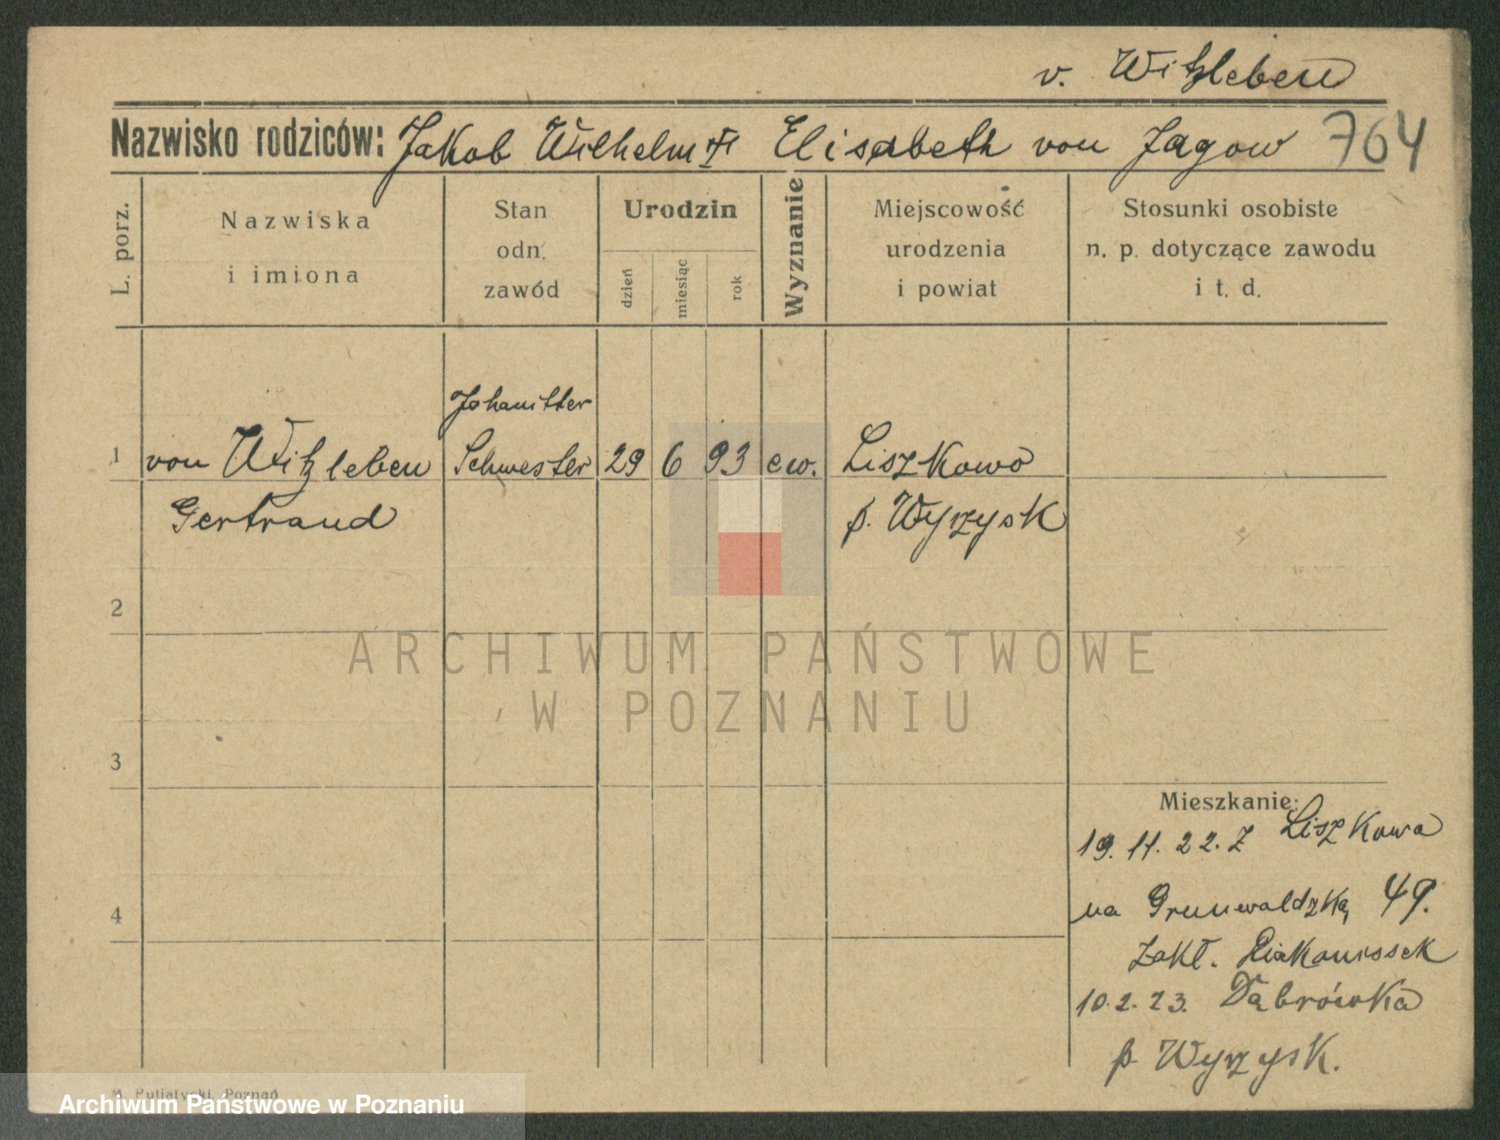 v. Witzleben
Nazwisko rodziców: Jakob Wilhelm Elisabeth von Jagow 764
L. porz.
Nazwiska
i imiona
Stan
odn.
zawód
Urodzin
dzień
miesiąc
rok
Wyznanie
Miejscowość
urodzenia
i powiat
Stosunki osobiste
n. p. dotyczące zawodu
i t. d.
Johanitter
1 von Witzleben Schwester 29 6 93 ew. Liszkowo
Gertraud p. Wyrzysk
2
ARCHIWUM PAŃSTWOWE
W POZNANIU
3
Mieszkanie:
19. 11. 22. z Liszkowa
na Grunwaldzką 49.
4
Zakł. Diakonissek
10. 2. 23. Dąbrówka
p Wyrzysk.
Putiatycki, Poznań
Archiwum Państwowe w Poznaniu